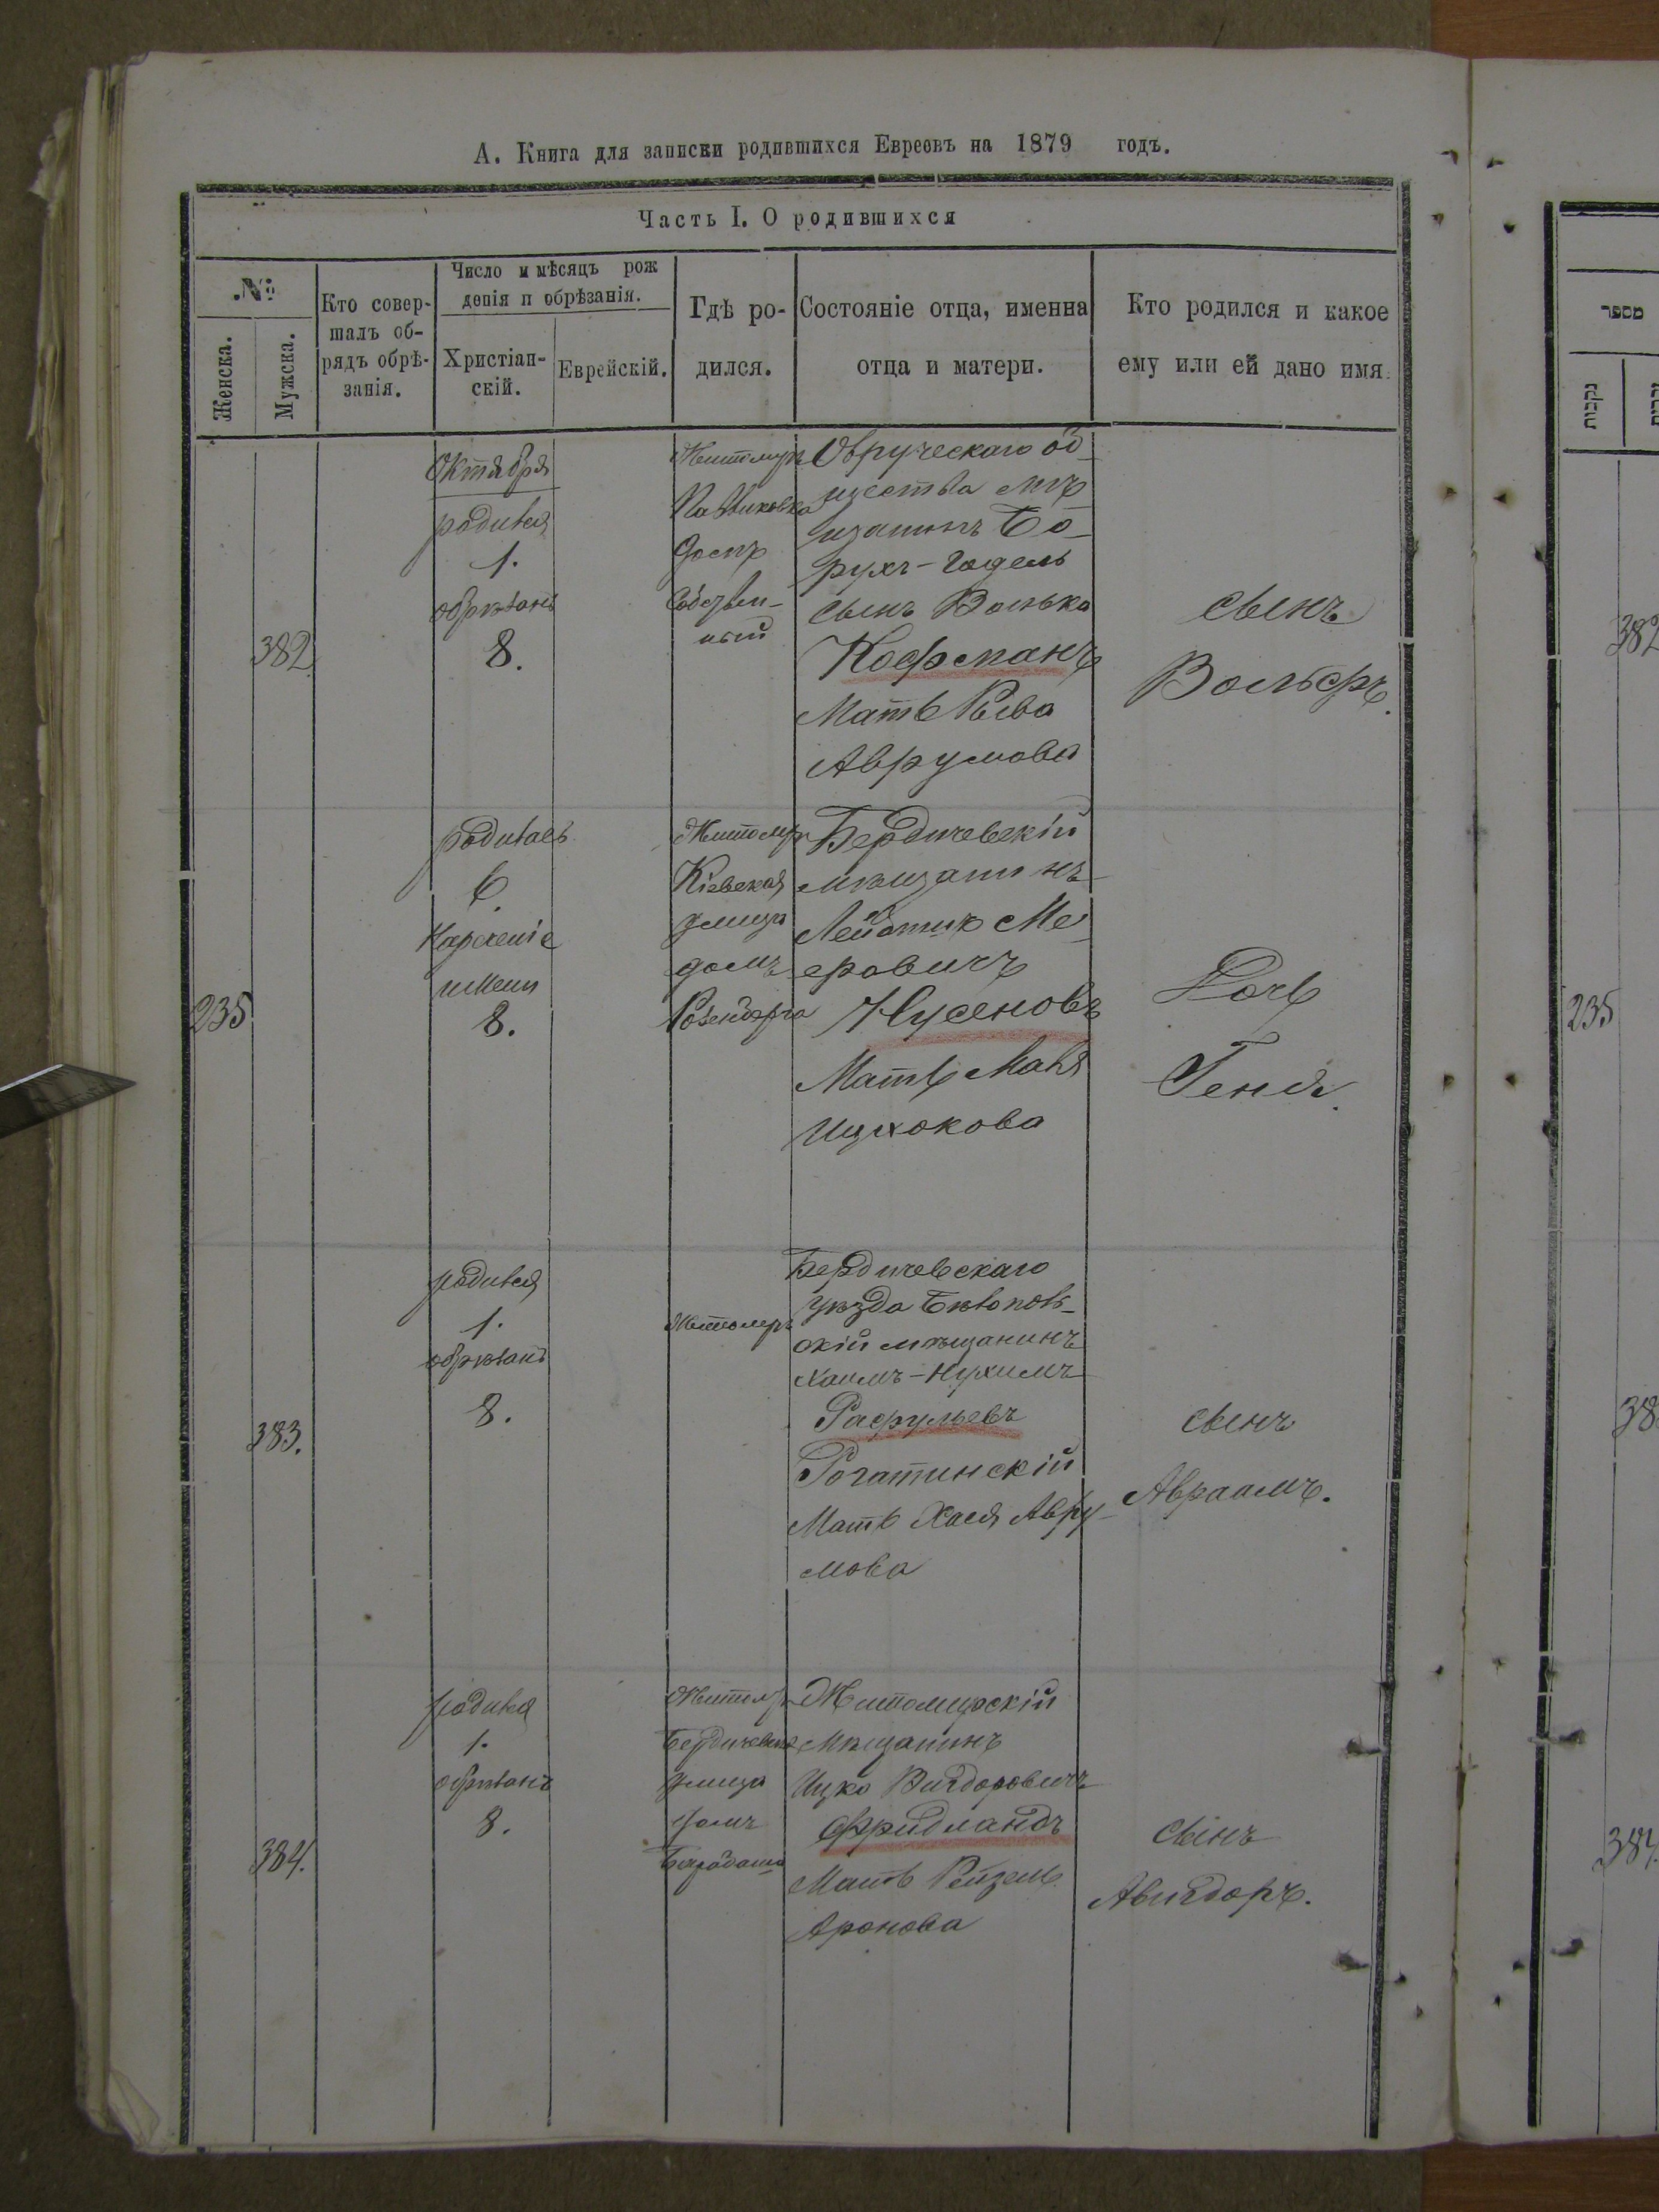 А. Книга для записки родившихся Евреевъ на 1879 годъ.
Часть I. О родившихся
№
Женска.
Мужска.
Кто совер-
шалъ об-
рядъ обрѣ-
занія.
Число и мѣсяцъ рож
денія и обрѣзанія.
Христіан-
скій.
Еврейскій.
Гдѣ ро-
дился.
Состояніе отца, именна
отца и матери.
Кто родился и какое
ему или ей дано имя.
382
Октября
родился
1.
обрѣзанъ
8.
Житомиръ
домъ
Собствен-
ный
Овручскаго об-
щества мѣ
щанинъ Бо-
рухъ-Гадель
сынъ Волька
Кофманъ
Мать Рыва
Аврумова
сынъ
Вольфъ.
235
родилась
6.
Нареченіе
имени
8.
Житомиръ
Кіевская
улица
домъ
Розенберга
Бердичевскій
мѣщанинъ
Лейзтикъ Ме-
еровичъ
Нусеновъ
Мать Маня
Ицхокова
Дочь
Геня.
383.
родился
1.
обрѣзанъ
8.
Житомиръ
Бердичевскаго
уѣзда Бѣлополь-
скій мѣщанинъ
Хаимъ-Нухимъ
Рафульевъ
Рогатинскій
Мать Хася Авру-
мова
сынъ
Авраамъ.
384.
родился
1.
обрѣзанъ
8.
Житомиръ
Бердичевская
улица
домъ
Житомирскій
Мѣщанинъ
Ицко Вигдоровичъ
Фридландъ
Мать Рейзель
Аронова
сынъ
Авигдоръ.
מספר
נקבות
382
235
38
384.